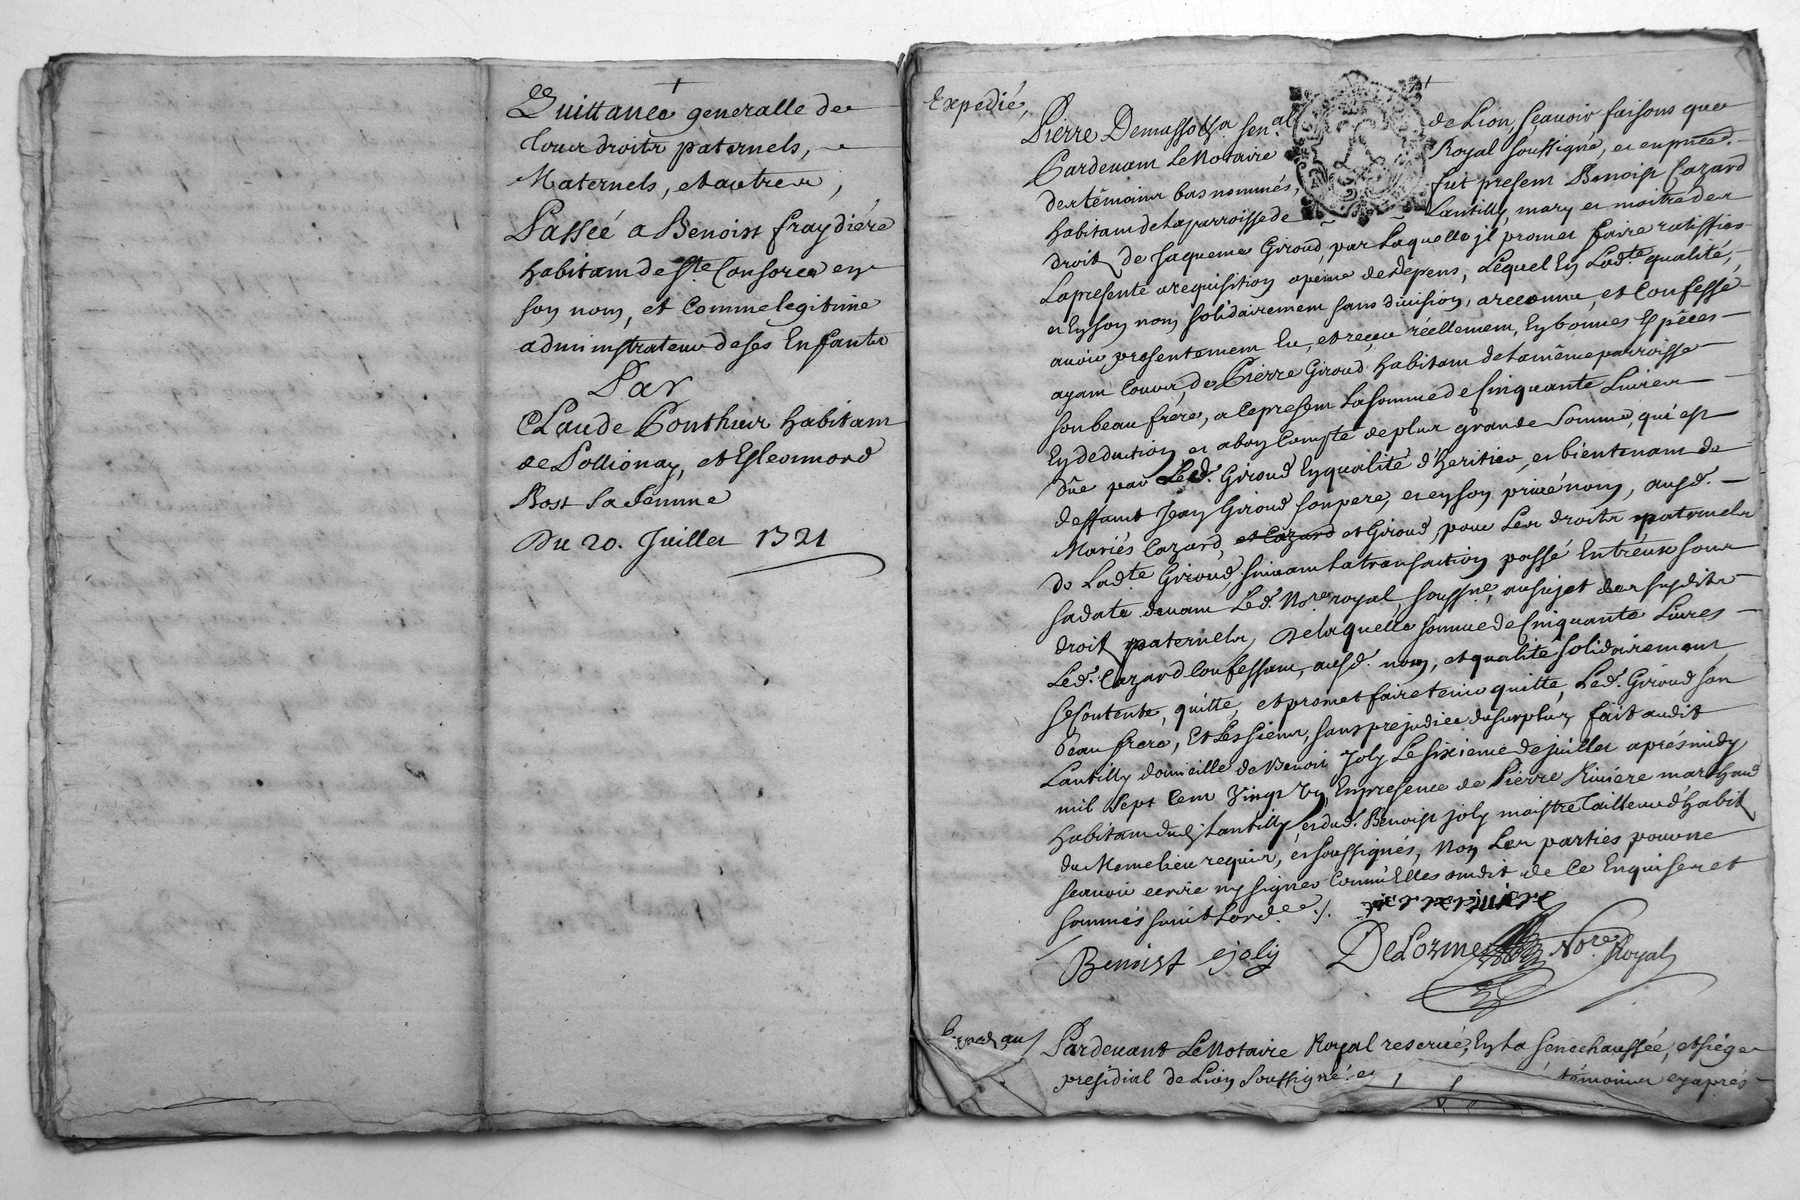 Quittance generalle de
tous droits paternels,
Maternels, et autres,
Passée a Benoist fraydiére
habitant de Ste Consorce en
son nom, et Comme legitime
administrateur de ses Enfants
Par
Claude Ponthus habitant
de Pollionay, et Esleonnord
Bost sa femme
Du 20. Juillet 1721
Expedié,
Pierre Demasso sen.al de Lion, scavoir faisons que
Pardevant Le Notaire Royal soussigné, et en pnce.
des témoins bas nommés, fut present Benoist Cazard
habitant de la parroisse de Lantilly, mary et maitre des
droits de Jaqueme Giroud, par Laquelle jl promet faire ratiffier
La presente a requisition a peine de depens, Lequel En Lad.te qualité,
et En son nom solidairement sans division, a reconnu, et Confessé
avoir presentement Eu, et reçu réellement, En bonnes Espéces
ayant Cours, de Pierre Giroud habitant de la même parroisse
son beau frere, a Ce present La somme de Cinquante Livres
En deduction et a bon Compte de plus grande somme, qui est
dûe par Led. Giroud En qualité d'heritier, et bientenant de
deffunt Jean Giroud son pere, et en son privé nom, ausd.
Mariés Cazard, et Cazard et Giroud, pour Les droits paternels
de Lad.te Giroud suivant La transaction passé Entr'eux sous
sa date devant Led. No.re royal, souss.né, au sujet des susdits
droits paternels, De laquelle somme de Cinquante Livres
Led. Cazard Confessant, ausd. nom, et qualité solidairement
se Contente, quitte, et promet faire tenir quitte, Led. Giroud son
beau frere, Et Les siens, sans prejudice du surplus fait audit
Lantilly domicille de Benoist Joly Le sixieme de juillet aprés midy
mil sept Cent Vingt Un, En presence de Pierre Riviére marchand
habitant dud. Lantilly, et dud. Benoist joly maistre Tailleur d'habits
du Meme lieu requis, et soussignés, Non Les parties pour ne
scavoir ecrire ny signer Comm'Elles ont dit de Ce Enquises et
sommés suivt L'ord.ce ./. pierre riviere
Benoist joly DeLorme No.re Royal
Pardevant Le Notaire Royal reservé, En La Senechaussée, et siége
presidial de Lion soussigné et témoins cy aprés